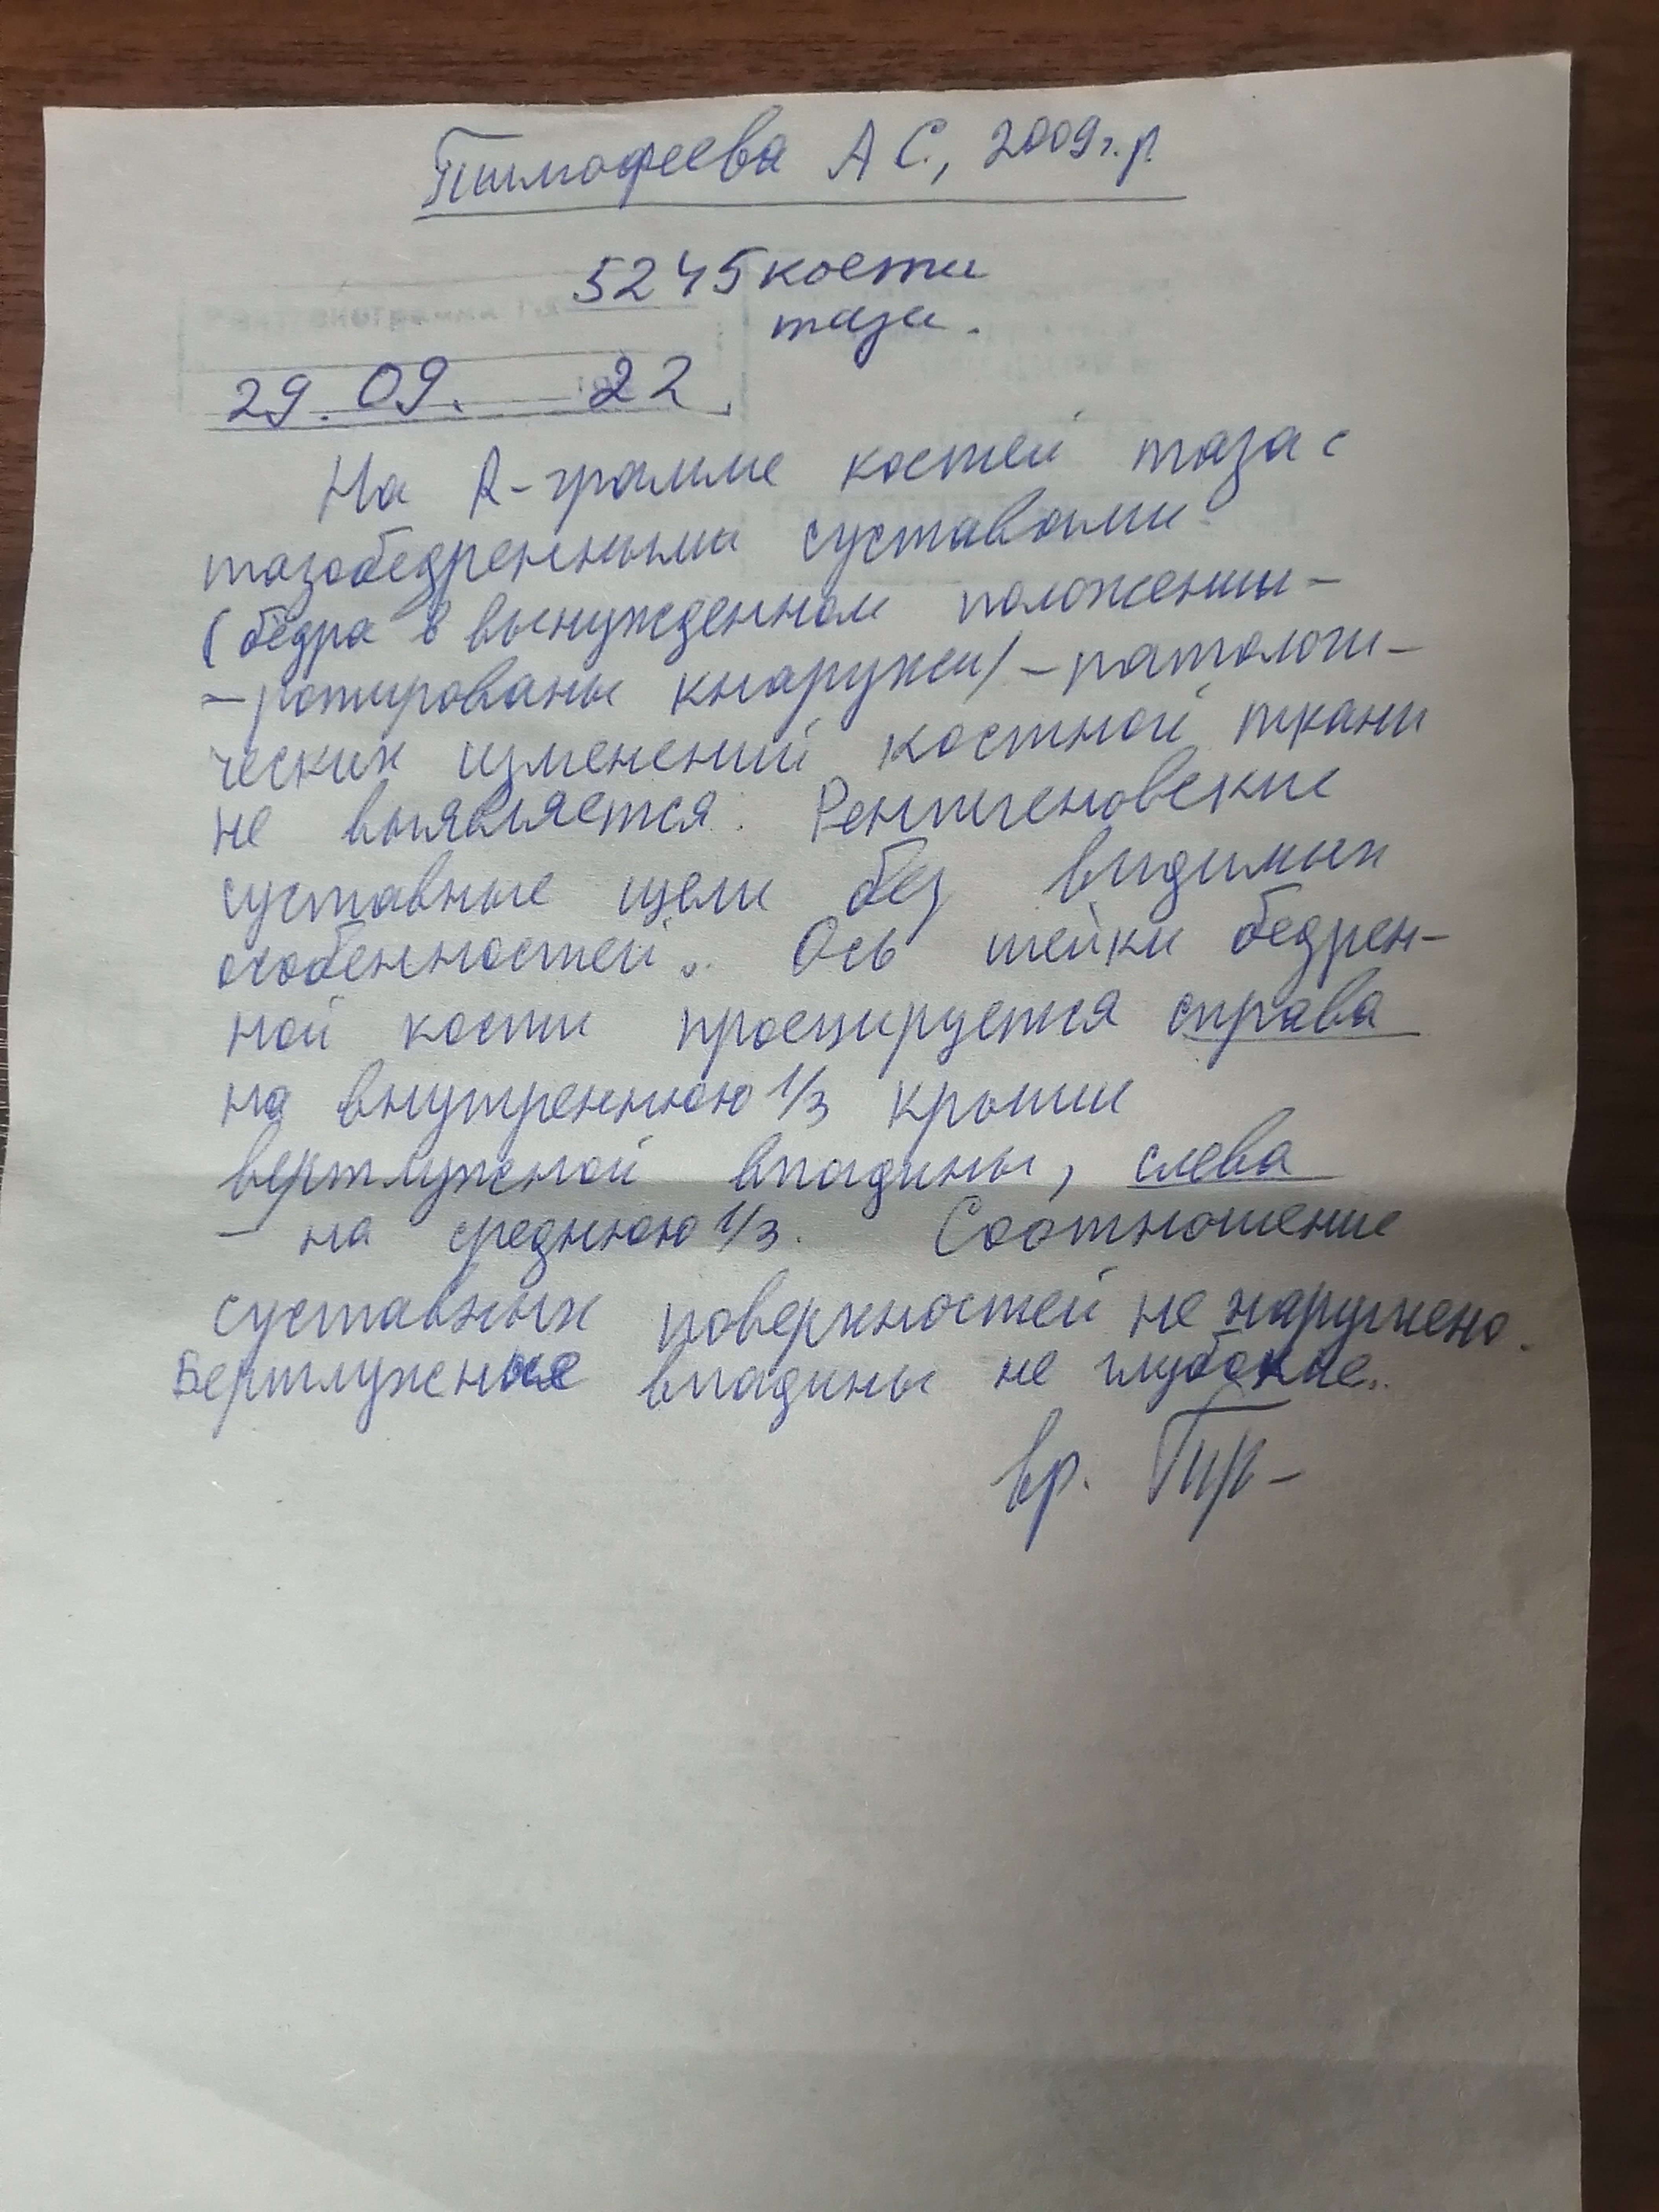 Тимофеева А С., 2009г.р.
5245 кости
таза.
29. 09. 22
На R-грамме костей таза с
тазобедренными суставами
(бедра в вынужденном положении-
-ротированы кнаружи/-патологи-
ческих изменений костной ткани
не выявляется. Рентгеновские
суставные щели без видимых
особенностей. Ось шейки бедрен-
ной кости проецируется справа
на внутреннюю 1/3 крыши
вертлужной впадины, слева
- на среднюю 1/3. Соотношение
суставных поверхностей не нарушено.
Вертлужные впадины не глубокие.
вр.